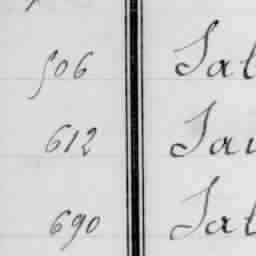 506 Sal
612 Sau
690 Sal